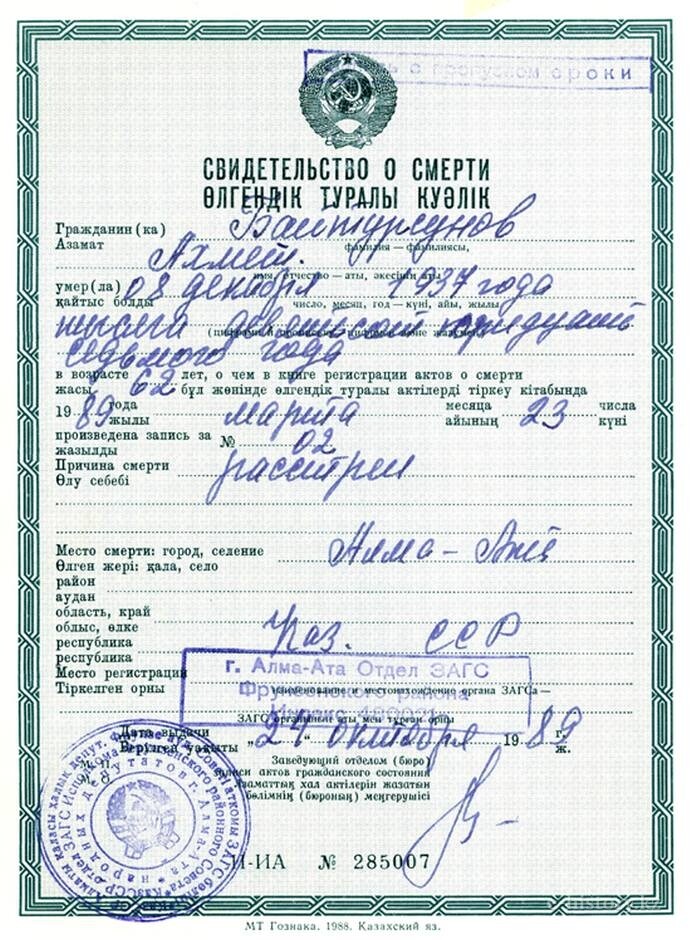 с пропуском сроки
СВИДЕТЕЛЬСТВО О СМЕРТИ
ӨЛГЕНДІК ТУРАЛЫ КУӘЛІК
Гражданин (ка) Байтурсунов
Азамат фамилия — фамилиясы,
Ахмет.
имя, отчество — аты, әкесінің аты
умер(ла) 08 декабря 1937 года
қайтыс болды число, месяц, год — күні, айы, жылы
тысяча девятьсот тридцать
седьмого года
в возрасте 62 лет, о чем в книге регистрации актов о смерти
жасы бұл жөнінде өлгендік туралы актілерді тіркеу кітабында
19 89 года марта месяца 23 числа
жылы айының күні
произведена запись за № 02
жазылды
Причина смерти расстрел
Өлу себебі
Место смерти: город, селение Алма-Ата
Өлген жері: қала, село
район
аудан
область, край
облыс, өлке
республика Каз. ССР
республика
Место регистрации
Тіркелген орны наименование и местонахождение органа ЗАГСа —
г. Алма-Ата Отдел ЗАГС
Фрунзенского района
Индекс
ЗАГС органының аты мен тұрған орны
Дата выдачи „24“ октября 19 89 г.
Берілген уақыты ж.
Заведующий отделом (бюро)
записи актов гражданского состояния
Азаматтық хал актілерін жазатын
бөлімнің (бюроның) меңгерушісі
II-ИА № 285007
МТ Гознака. 1988. Казахский яз.